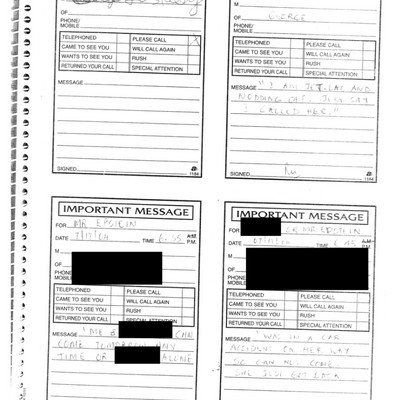 M
OF
PHONE/
MOBILE
TELEPHONED X PLEASE CALL
CAME TO SEE YOU WILL CALL AGAIN
WANTS TO SEE YOU RUSH
RETURNED YOUR CALL SPECIAL ATTENTION
MESSAGE
SIGNED
1184
M
OF GEORGE
PHONE/
MOBILE
TELEPHONED PLEASE CALL
CAME TO SEE YOU WILL CALL AGAIN
WANTS TO SEE YOU RUSH
RETURNED YOUR CALL SPECIAL ATTENTION
MESSAGE "I AM JETLAG AND
NODDING OFF JUST SAY
I CALLED HER."
SIGNED
1184
IMPORTANT MESSAGE
FOR MR EPSTEIN
DATE TIME A.M.
P.M.
M
OF
PHONE/
MOBILE
TELEPHONED PLEASE CALL
CAME TO SEE YOU WILL CALL AGAIN
WANTS TO SEE YOU RUSH
RETURNED YOUR CALL SPECIAL ATTENTION
MESSAGE "ME & CAN
COME TOMORROW ANY
TIME OR ALONE
IMPORTANT MESSAGE
FOR OR MR EPSTEIN
DATE TIME A.M.
P.M.
M
OF
PHONE/
MOBILE
TELEPHONED PLEASE CALL
CAME TO SEE YOU WILL CALL AGAIN
WANTS TO SEE YOU RUSH
RETURNED YOUR CALL SPECIAL ATTENTION
MESSAGE WAS IN A CAR
ACCIDENT ON HER WAY
SO CAN NOT COME
SHE JUST GOT BACK